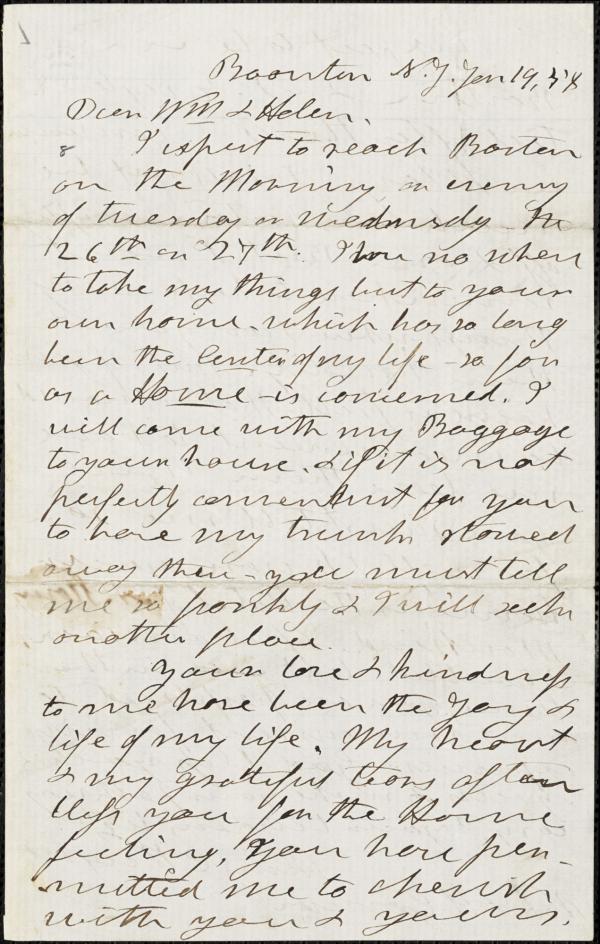 Boonton N.J. Jan 19, 58
Dear Wm & Helen.
I expect to reach Boston
on the Morning or evening
of tuesday or wednesday - the
26th or 27th. I have no where
to take my things but to your
own home - which has so long
been the Center of my life - so far
as a Home - is concerned. I
will come with my Baggage
to your house. & if it is not
perfectly convenient for you
to have my trunks stowed
away there - you must tell
me so frankly & I will seek
another place.
Your love & kindness
to me have been the Joy &
life of my life. My heart
& my grateful tears often
bless you for the Home
feeling, you have per-
mitted me to cherish
with you & yours.